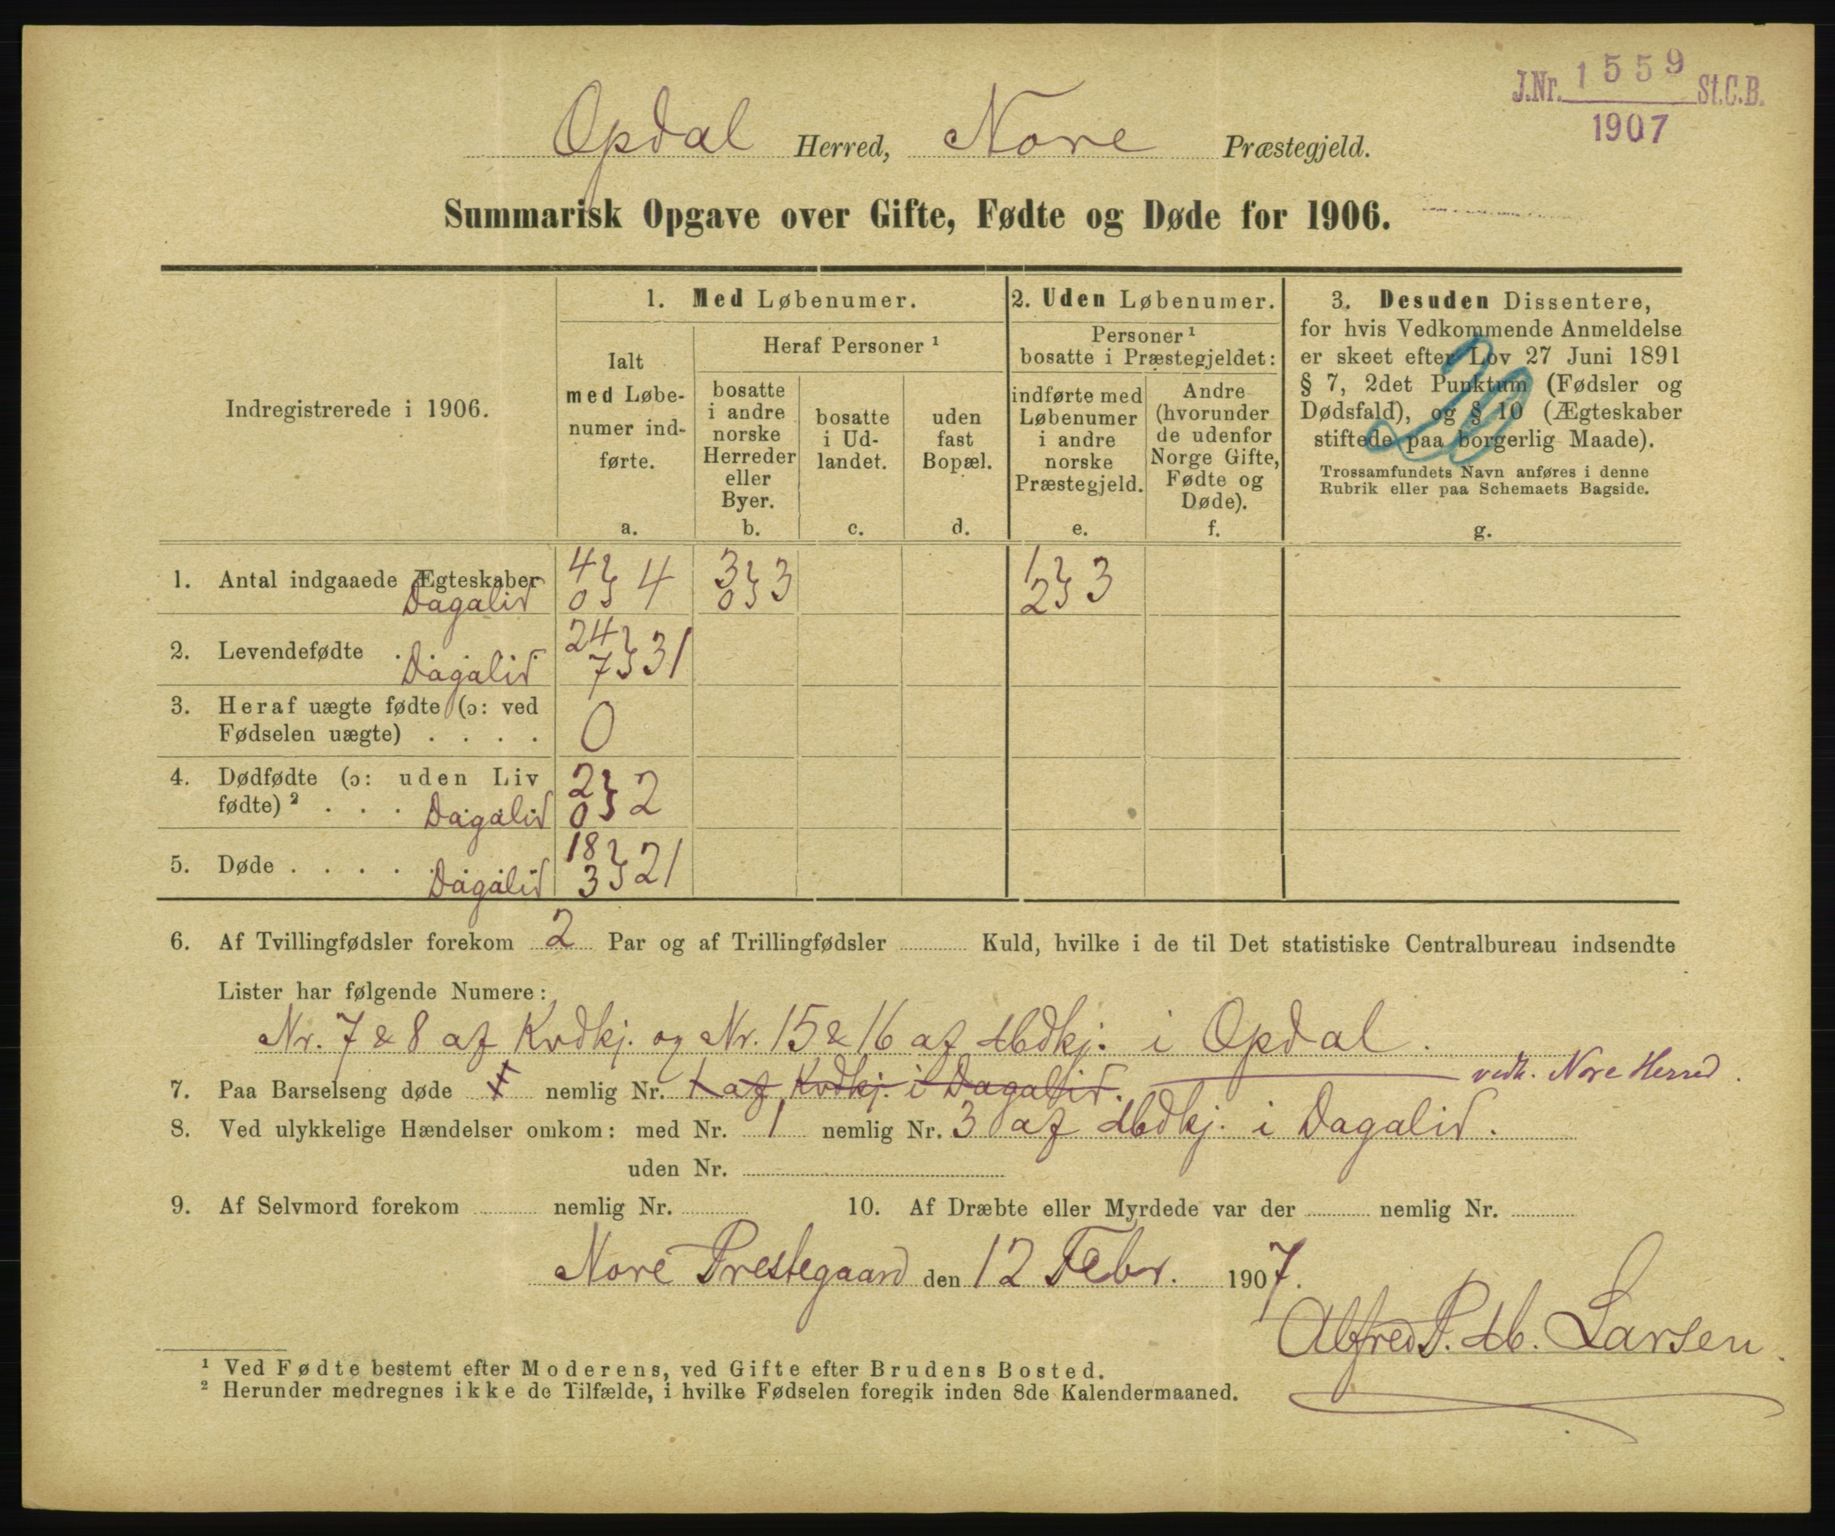 J.Nr. 1559 St.C.B.
1907
Opdal Herred, Nore Præstegjeld.
Summarisk Opgave over Gifte, Fødte og Døde for 1906.
Indregistrerede i 1906.
1. Med Løbenumer.
Ialt
med Løbe-
numer ind-
førte.
a.
Heraf Personer ¹
bosatte
i andre
norske
Herreder
eller
Byer.
b.
bosatte
i Ud-
landet.
c.
uden
fast
Bopæl.
d.
2. Uden Løbenumer.
Personer ¹
bosatte i Præstegjeldet:
indførte med
Løbenumer
i andre
norske
Præstegjeld.
e.
Andre
(hvorunder
de udenfor
Norge Gifte,
Fødte og
Døde).
f.
3. Desuden Dissentere,
for hvis Vedkommende Anmeldelse
er skeet efter Lov 27 Juni 1891
§ 7, 2det Punktum (Fødsler og
Dødsfald), og § 10 (Ægteskaber
stiftede paa borgerlig Maade).
Trossamfundets Navn anføres i denne
Rubrik eller paa Schemaets Bagside.
g.
20
1. Antal indgaaede Ægteskaber 4 } 4 3 } 3 1 } 3
Dagalid 0 0 2
2. Levendefødte . . . . 24 } 31
Dagalid 7
3. Heraf uægte fødte (ɔ: ved
Fødselen uægte) . . . . 0
4. Dødfødte (ɔ: uden Liv 2 } 2
fødte) ² . . . Dagalid 0
5. Døde . . . . . 18 } 21
Dagalid 3
6. Af Tvillingfødsler forekom 2 Par og af Trillingfødsler Kuld, hvilke i de til Det statistiske Centralbureau indsendte
Lister har følgende Numere:
Nr. 7 & 8 af Kvdkj. og Nr. 15 & 16 af Mdkj. i Opdal.
7. Paa Barselseng døde 1 nemlig Nr. 1 af Kvdkj. i Dagalid. vedk. Nore Herred.
8. Ved ulykkelige Hændelser omkom: med Nr. 1 nemlig Nr. 3 af Mdkj. i Dagalid.
uden Nr.
9. Af Selvmord forekom nemlig Nr. 10. Af Dræbte eller Myrdede var der nemlig Nr.
Nore Prestegaard den 12 Febr. 1907.
Alfred P. M. Larsen.
¹ Ved Fødte bestemt efter Moderens, ved Gifte efter Brudens Bosted.
² Herunder medregnes ikke de Tilfælde, i hvilke Fødselen foregik inden 8de Kalendermaaned.